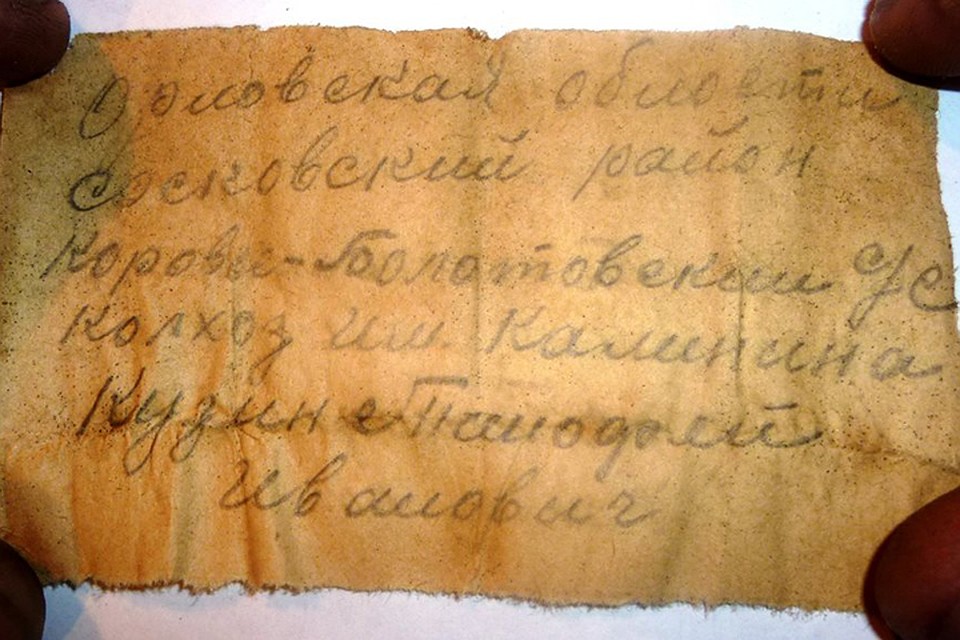 Орловская области
Сосковский район
Корови-Болотовский с/с
колхоз им. Калинина
Кузин
Иванович